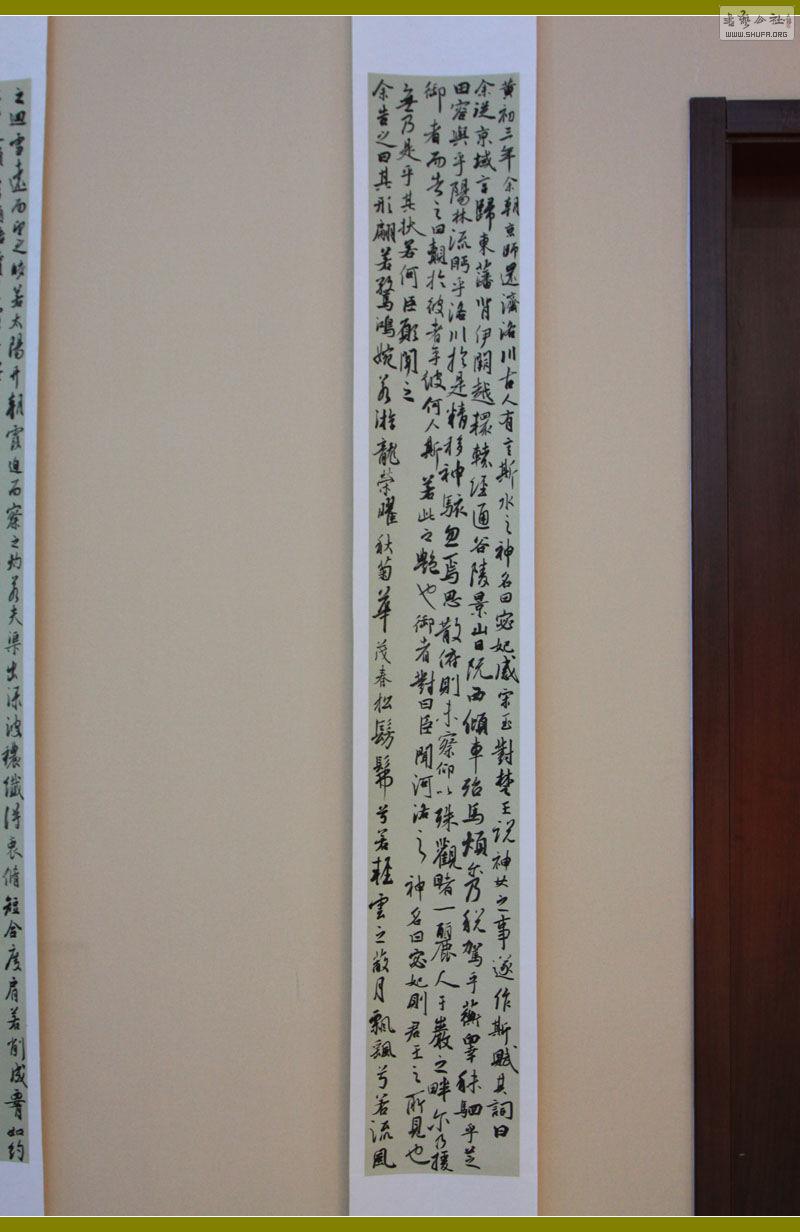 書藝公社
WWW.SHUFA.ORG
黄初三年余朝京師還濟洛川古人有言斯水之神名曰宓妃感宋玉對楚王説神女之事遂作斯賦其詞曰
余從京域言歸東藩背伊闕越轘轅經通谷陵景山日既西傾車殆馬煩尔乃税駕乎蘅皋秣駟乎芝
田容與乎陽林流眄乎洛川於是精移神駭忽焉思散俯則未察仰以殊觀睹一麗人于巖之畔尔乃援
御者而告之曰覿於彼者乎彼何人斯若此之艷也御者對曰臣聞河洛之神名曰宓妃則君王之所見也
無乃是乎其狀若何臣願聞之
余告之曰其形翩若驚鴻婉若遊龍榮曜秋菊華茂春松髣髴兮若輕雲之蔽月飄飖兮若流風
之迴雪遠而望之皎若太陽升朝霞迫而察之灼若夫渠出淥波穠纖得衷脩短合度肩若削成腰如約